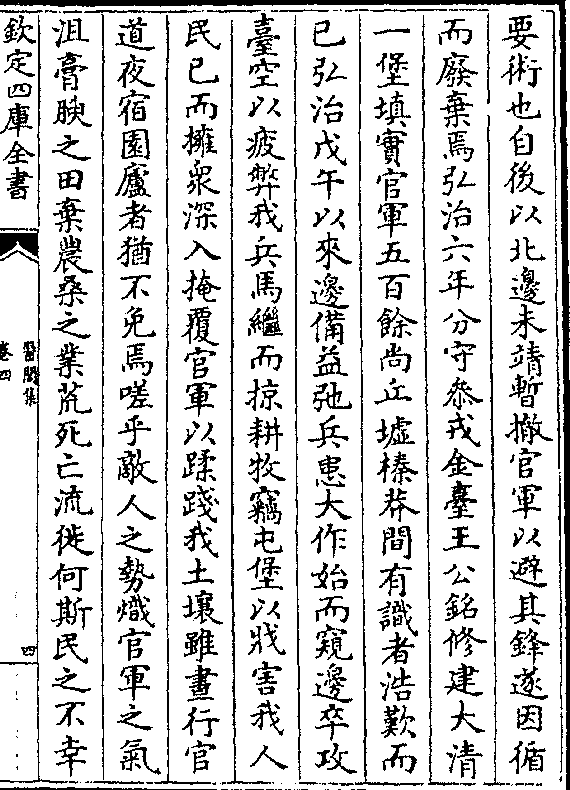 要術也自後以北邊未靖暫撤官軍以避其鋒遂因循
而廢棄焉弘治六年分守叅戎金臺王公銘修建大清
一堡填實官軍五百餘尚丘墟榛莽間有識者浩歎而
已弘治戊午以來邊備益弛兵患大作始而窺邊卒攻
臺空以疲弊我兵馬繼而掠耕牧竊屯堡以戕害我人
民已而擁衆深入掩覆官軍以蹂踐我土壤雖晝行官
道夜宿園廬者猶不免焉嗟乎敵人之勢熾官軍之氣
沮膏腴之田棄農桑之業荒死亡流徙何斯民之不幸
欽定四庫全書
醫閭集
卷四
四